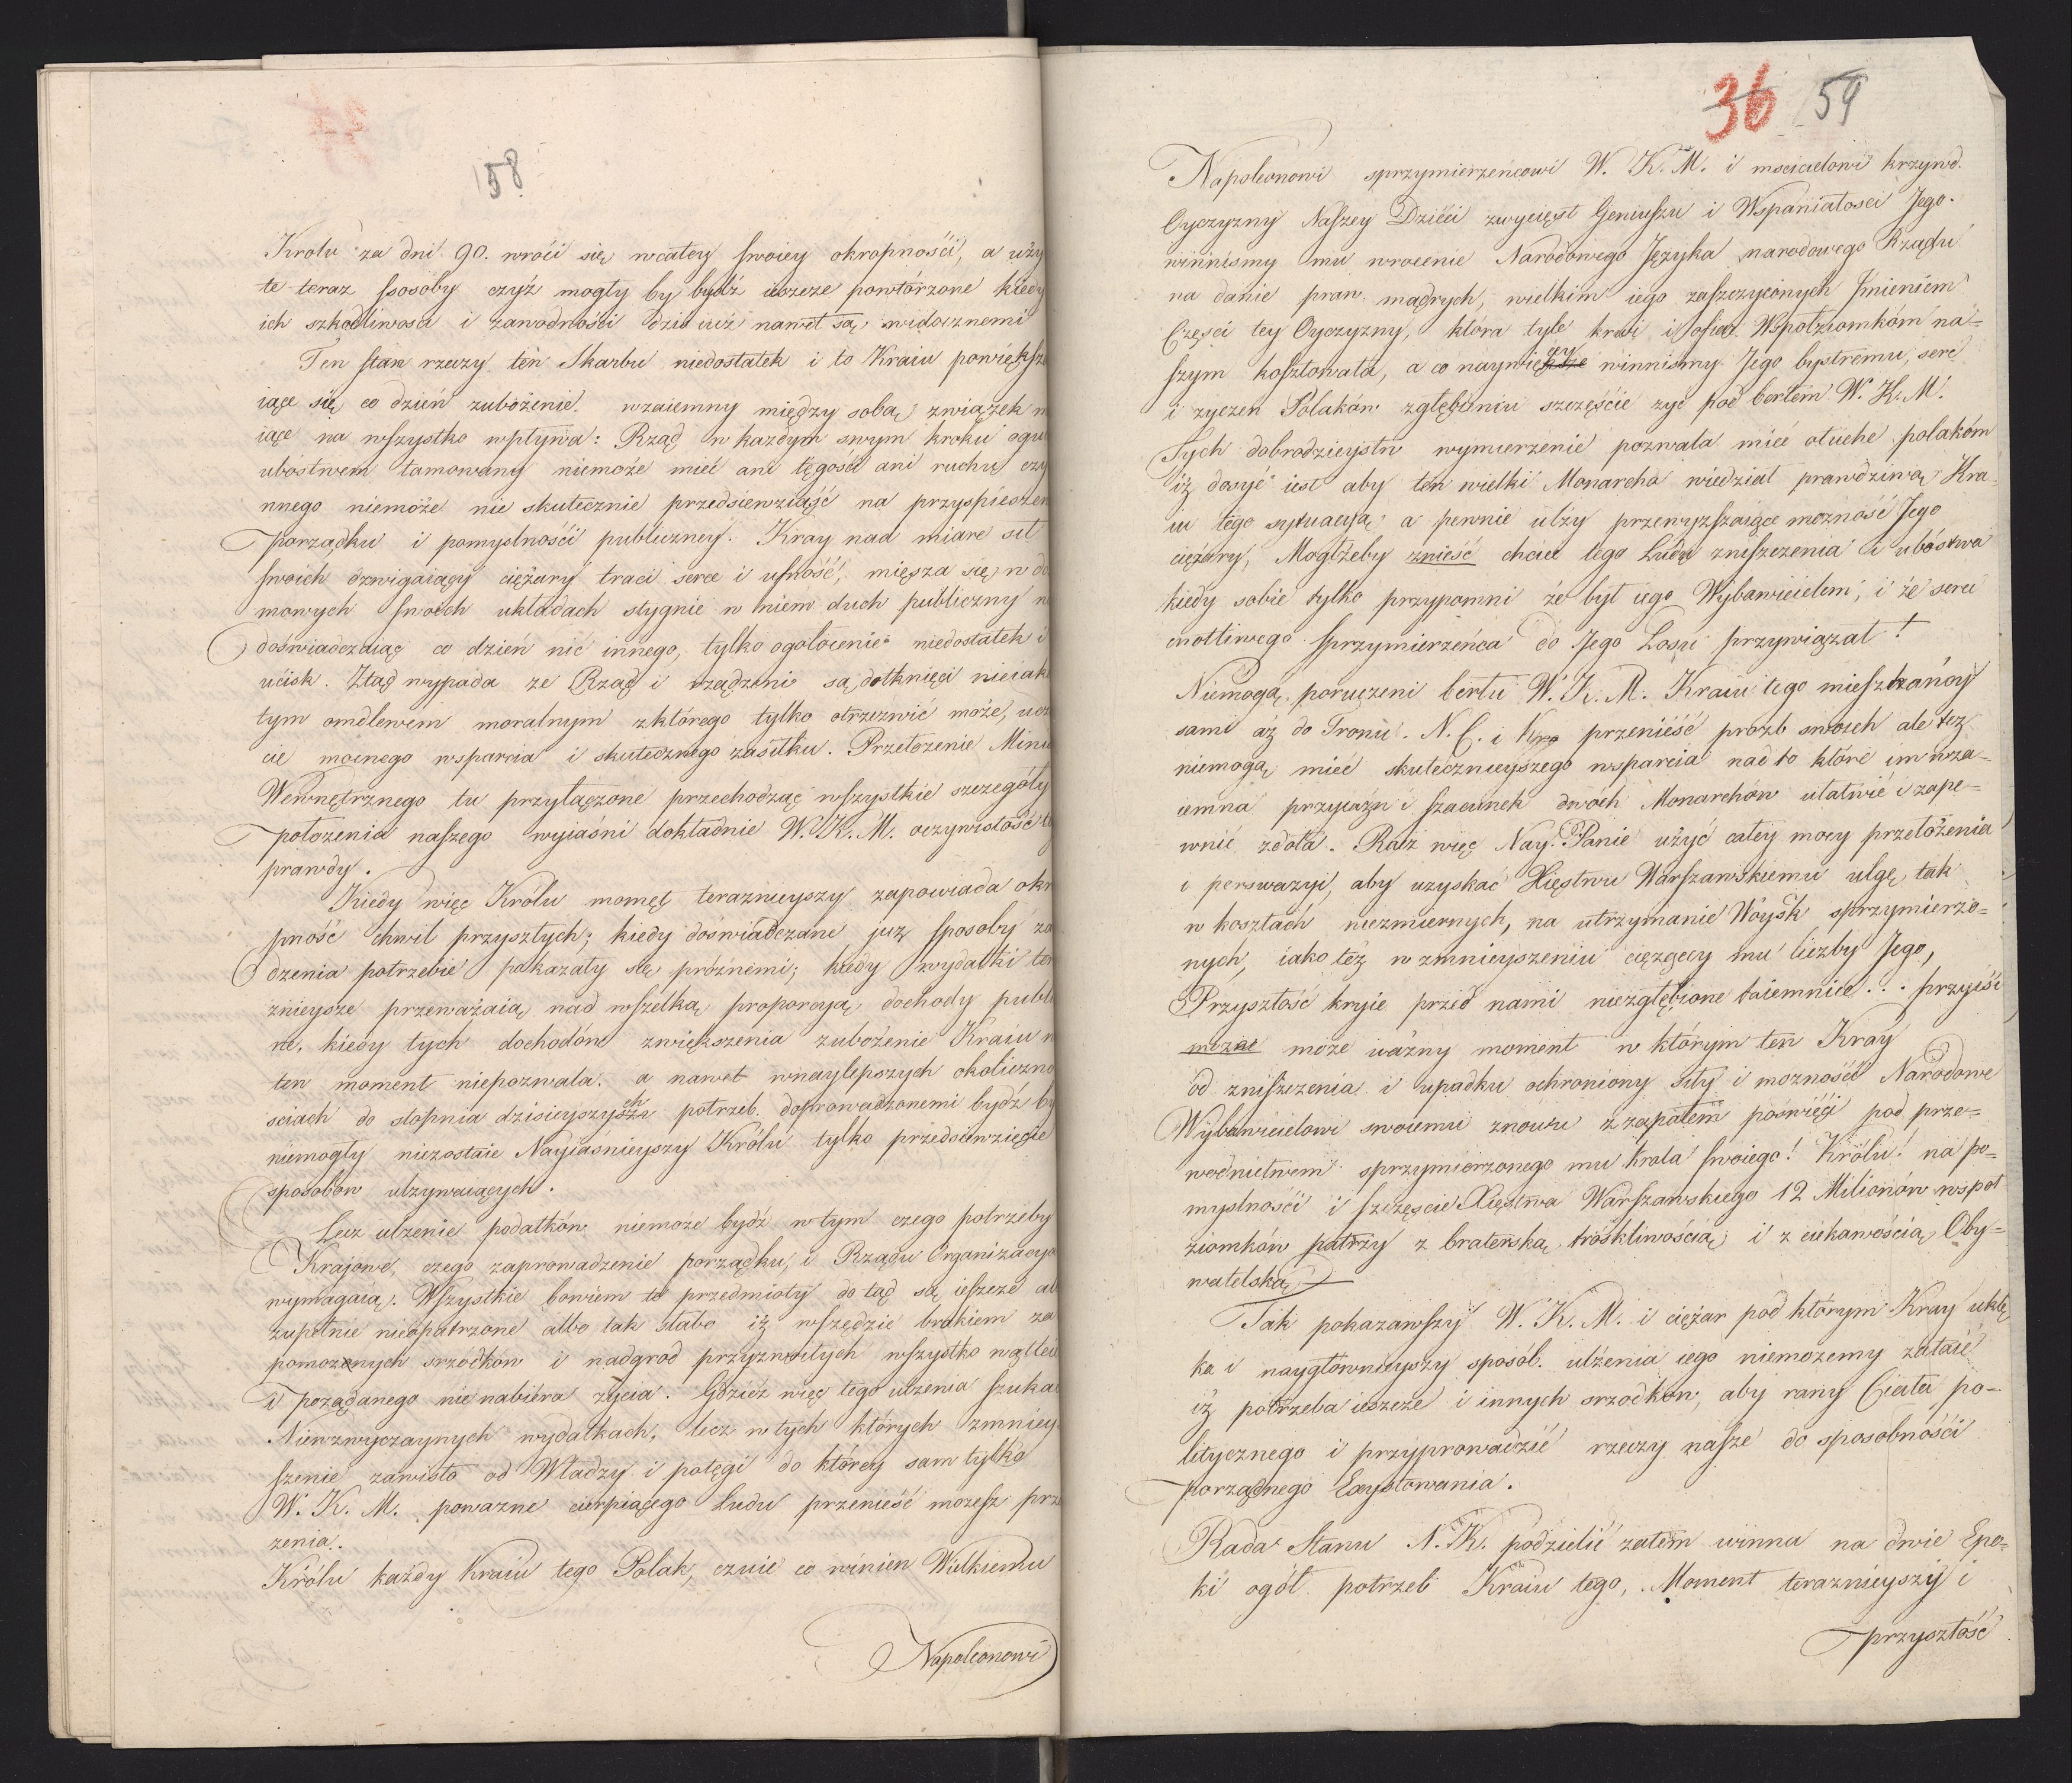 58
Krolu za dni 90. wróci się wcałey swoiey okropnośći, a uży
te teraz sposoby czyż mogły by bydź ieszcze powtórzone kiedy
ich szkodliwosci i zawodnośći dziś iuż nawet są widocznemi
Ten stan rzeczy ten Skarbu niedostatek i to Kraiu powiększa
iące się co dzień zubożenie. wzaiemny między sobą związek m
iące na wszystko wpływa: Rząd w każdym swym kroku ogul
ubóstwem tamowany niemoże mieć ani tęgośći ani ruchu czy
nnego niemoże nic skutecznie przedsiewziąść na przyspieszen
porządku i pomyslnośći publiczney. Kray nad miare sił
swoich dzwigaiący ciężary traci serce i ufność, miesza się w do
mowych swoich układach stygnie w niem duch publiczny n
doświadczaiąc co dzień nić innego, tylko ogołocenie niedostatek i
ućisk. Ztąd wypada ze Rząd i rządzeni są dotknięci nieiak
tym omdleniem moralnym zktórego tylko otrzezwić może, ucz
cie mocnego wsparcia i skutecznego zasiłku. Przełozenie Mini
Wewnętrznego tu przyłączone przechodząc wszystkie szczegóły
położenia naszego wyiaśni dokładnie W. K. M. oczywistość te
prawdy.
Kiedy więc Królu moment teraznieyszy zapowiada okro
pność chwil przyszłych; kiedy doświadczane juz sposoby za
dzenia potrzebie pokazały się próżnemi; kiedy wydatki tera
znieysze przeważaią nad wszelką proporcyą dochody publi
ne. kiedy tych dochodów zwiększenia zubożenie Kraiu w
ten moment niepozwala. a nawet wnaylepszych okoliczno
sciach do stopnia dzisieyszych potrzeb. doprowadzonemi bydź by
niemogły niezostaie Nayiasnieyszy Królu tylko przedsiewzięcie
sposobow ulzywaiących.
Lecz ulzenie podatków niemoże bydź w tym czego potrzeby
Krajowe, czego zaprowadzenie porządku, i Rządu Organizacya
wymagaią. Wszystkie bowiem te przedmioty do tąd są ieszcze al
zupełnie nieopatrzone albo tak słabo iż wszędzie brakiem za
pomożonych srzódków i nadgrod przyzwoitych wszystko wątleie
i pożądanego nie nabiéra życia. Gdzież więc tego ulzenia szukać
Niewzwyczaynych wydatkach, lecz w tych których zmniey
szenie zawisło od Władzy i potęgi do którey sam tylko
W. K. M. powazne cierpiącego Ludu przenieść możesz prze
zenia.
Królu każdy Kraiu tego Polak, czuie co winien Wielkiemu
Napoleonowi
36 59
Napoleonowi sprzymierzeńcowi W. K. M. i mscicielowi krzywd.
Oyczyzny Naszey Dzieci zwycięst Geniuszu i Wspaniałosci Jego.
winnismy mu wrocenie Narodowego Języka narodowego Rządu
na danie praw mądrych, wielkim iego zaszczyconych Jmieniem
Częsci tey Oyczyzny, która tyle krwi i ofiar Wspołziomkom na=
szym kosztowała, a co naywięcey winnismy Jego bystremu, serc
i zyczen Polaków zgłębieniu szczęście zyć pod berłem W. K. M.
Tych dobrodzieystw wymierzenie pozwala mieć otuche polakóm
iż dosyć iest aby ten wielki Monarcha wiedział prawdziwą Kra=
iu tego sytuacyą a pewnie ulży przewyzszaiące mozność Jego
ciężary, Mogłżeby znieść chcieć tego Ludu zniszczenia i ubóstwa
kiedy sobie tylko przypomni że był iego Wybawicielem, i że serce
cnotliwego sprzymierzeńca do Jego Losu przywiązał!
Niemogą poruczeni berłu W. K. M. Kraiu tego mieszkańcy
sami aż do Tronu. N. C. i Kra przenieść prozb swoich ale też
niemogą mieć skutecznieyszego wsparcia nad to które im wza=
iemna przyiaźn i szacunek dwóch Monarchów ułatwić i zape=
wnić zdoła. Racz więc Nay: Panie użyć całey mocy przełożenia
i perswazyi, aby uzyskać Xięstwu Warszawskiemu ulgę tak
w kosztach niezmiernych, na utrzymanie Woysk sprzymierzo=
nych, iako też w zmnieyszeniu ciężącey mu liczby Jego,
Przyszłość kryie przed nami niezgłębione taiemnice... przyiść
mozne może ważny moment w którym ten Kray
od zniszczenia i upadku ochroniony siły i mozność Narodowe
Wybawicielowi swoiemu znowu z zapałem poświęći pod prze=
wodnictwem sprzymierzonego mu Krola swoiego! Królu! na po=
myslnośći i szczęscie Xięstwa Warszawskiego 12 Milionów wspoł
ziomków patrzy z braterską troskliwością i z ciekawością Oby=
watelską
Tak pokazawszy W. K. M. i ciężar pod którym Kray uklę
ka i naygłownieyszy sposób. ulżenia iego niemożemy zataić
iż potrzeba ieszcze i innych srzodkow, aby rany Ciała po=
litycznego i przyprowadzić rzeczy nasze do sposobnośći
porządnego Exystowania.
Rada Stanu N. K. podzielić zatem winna na dwie Epo=
ki ogół potrzeb Kraiu tego, Moment teraznieyszy i
przyszłość